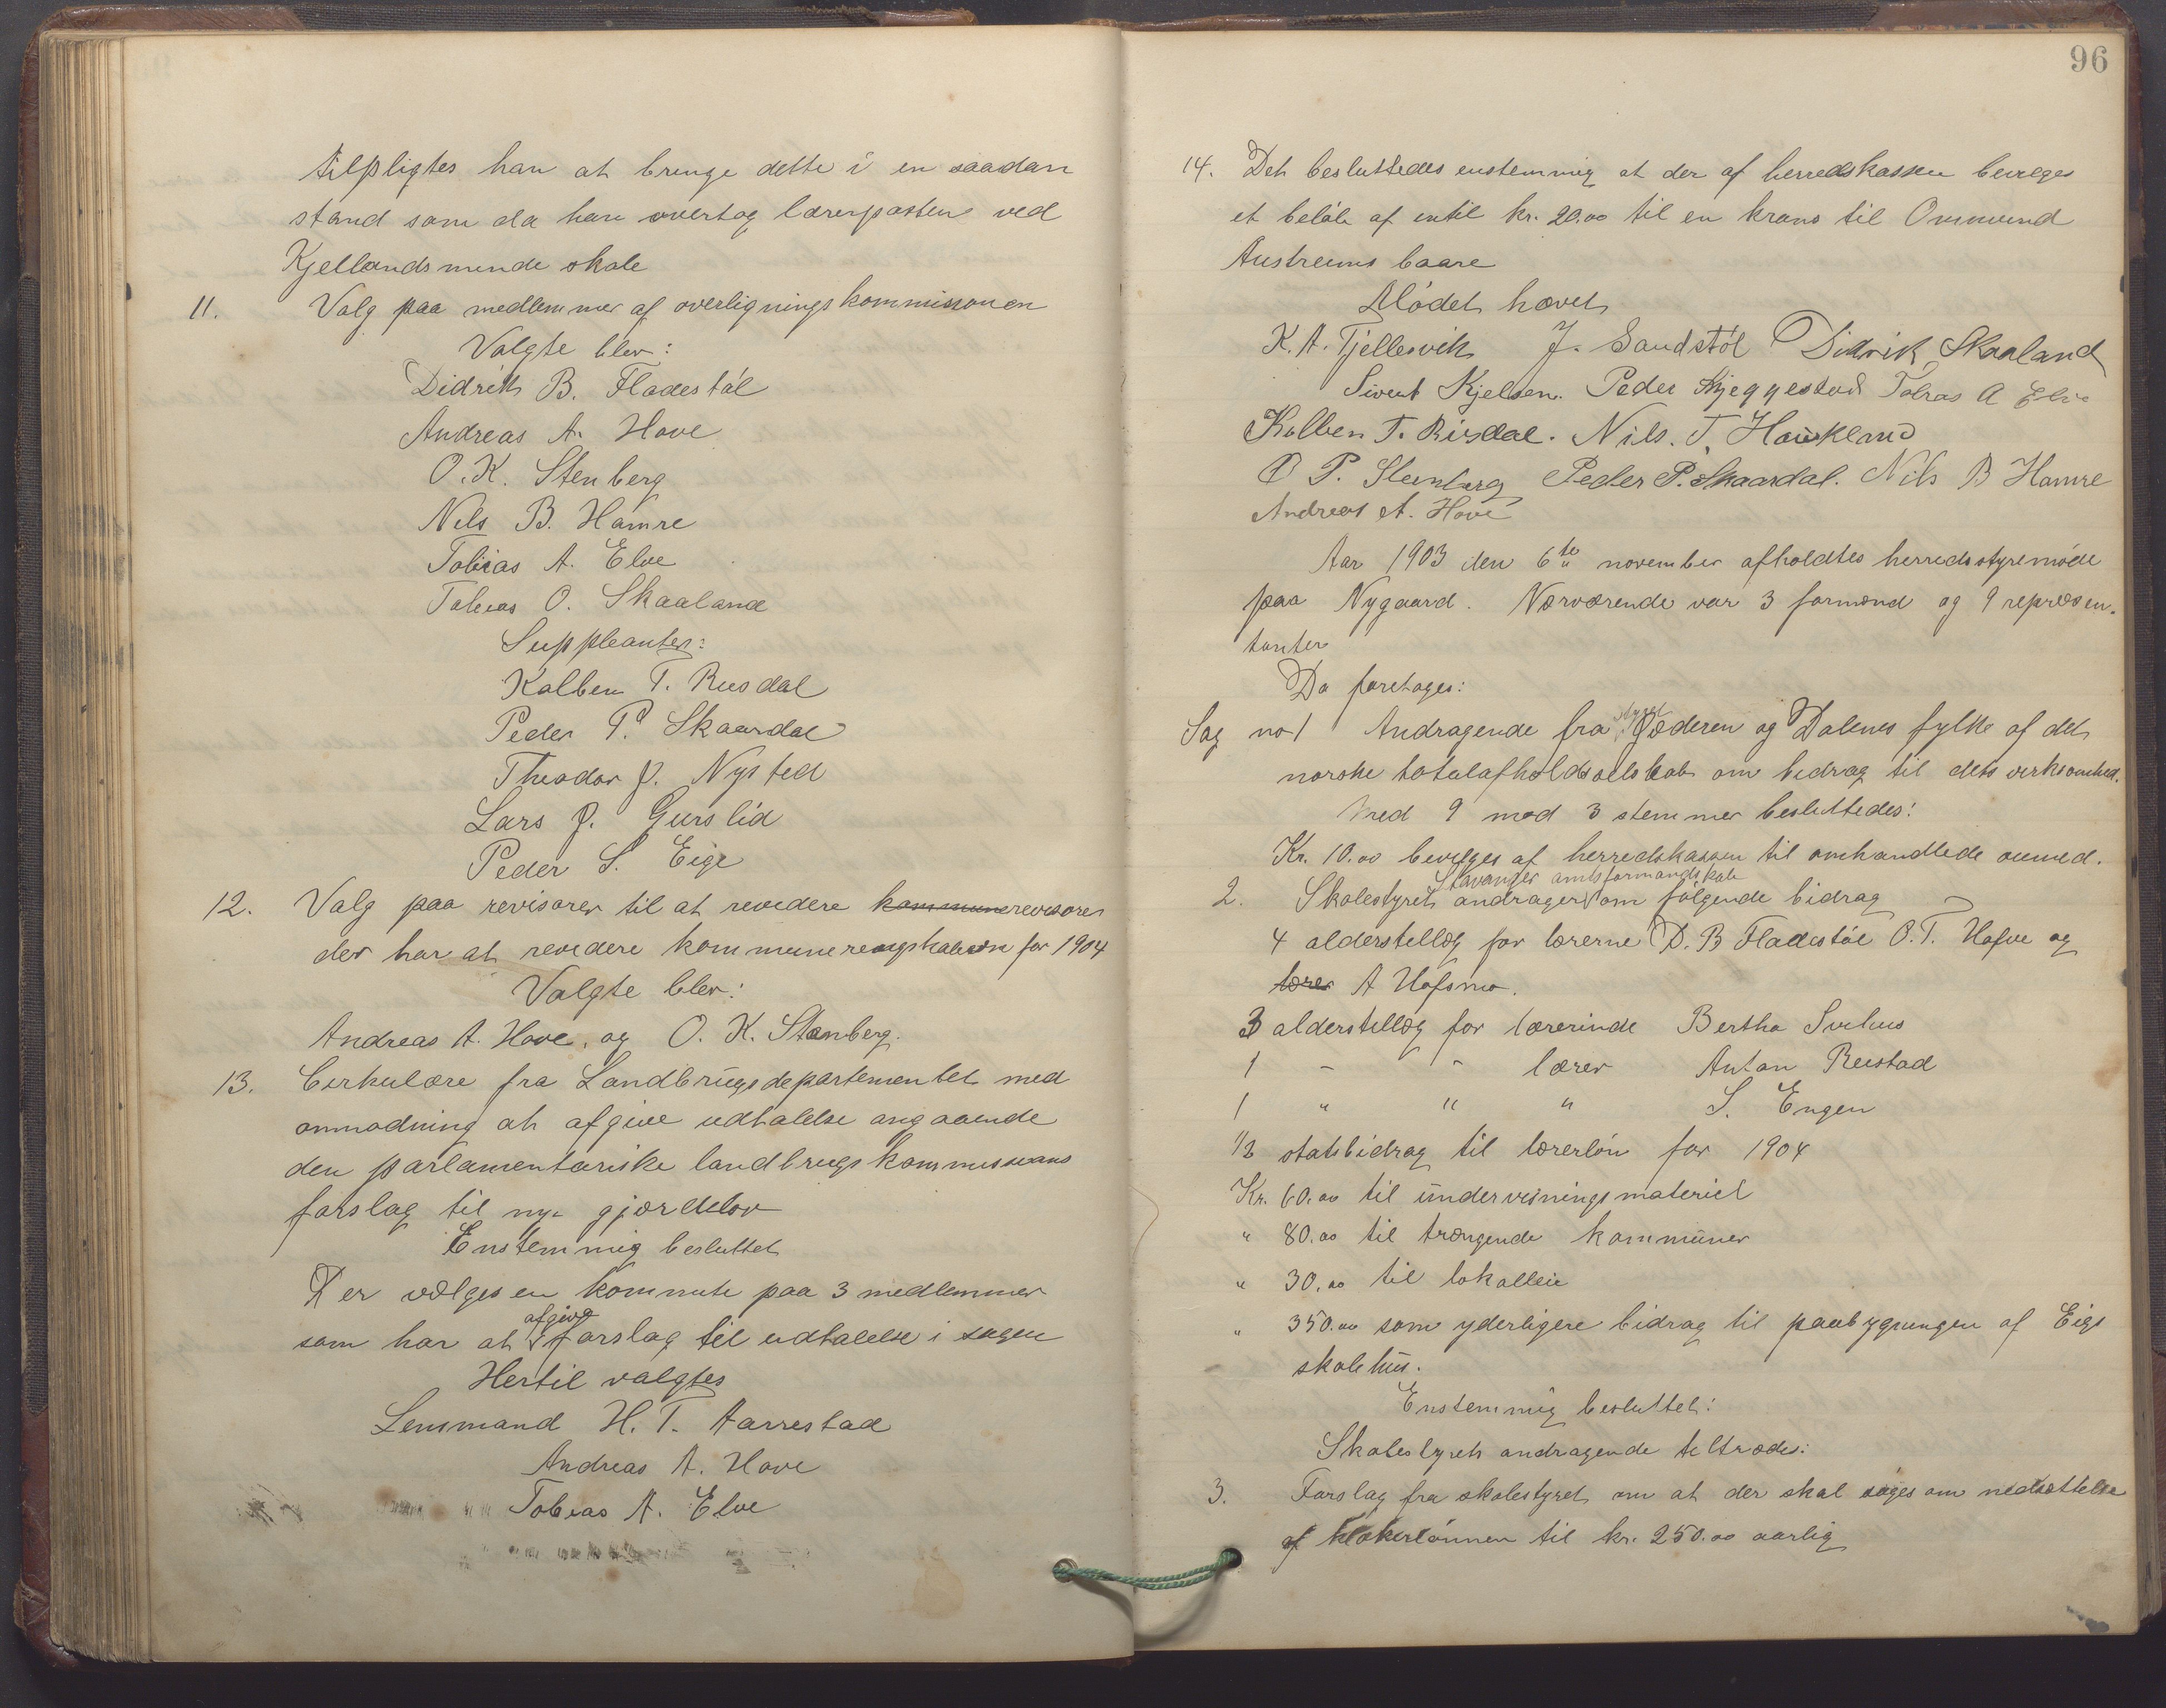 tilpligtes han at bringe dette i en saadan
stand som da han overtog lærerposten ved
Kjellandsminde skole
11. Valg paa medlemmer af overligningskommissionen
Valgte blev:
Didrik B. Fladestöl
Andreas A. Hove
O. K. Stenberg
Nils B. Hamre
Tobias A. Elve
Tobias O. Skaaland
Suppleanter:
Kolben T. Rusdal
Peder P. Skaardal
Theodor J. Nysted
Lars J. Gurslid
Peder S. Eige
12. Valg paa revisorer til at revidere kommunerevisorer
der har at revidere kommuneregnskaberne for 1904
Valgte blev:
Andreas A. Hove, og O. K. Stenberg.
13. Cirkulære fra Landbrugsdepartementet med
anmodning at afgive udtalelse angaaende
den parlamentariske landbrugskommissions
forslag til nye gjærdelov
Enstemmig besluttet
Der vælges en kommite paa 3 medlemmer
som har at afgive forslag til udtalelse i sagen
Hertil valgtes
Lensmand H. T. Aarrestad
Andreas A. Hove
Tobias A. Elve
96
14. Det besluttedes enstemmig at der af herredskassen bevilges
et beløb af indtil kr. 20.00 til en krans til Ommund
Austrums baare
Mödet hævet
K. A. Tjellesvik J. Sandstöl Didrik Skaaland
Sivert Kjelsen. Peder Skjeggestad Tobias A Elve
Kolben T. Risdal. Nils. T. Haukland
O P. Stenberg Peder P. Skaardal. Nils B Hamre
Andreas A. Hove
Aar 1903 den 6te november afholdtes herredsstyremöde
paa Nygaard. Nærværende var 3 formænd og 9 repræsen-
tanter
Da foretages:
Sag no 1 Andragende fra styret Jæderen og Dalenes fylke af det
norske totalafholdsselskab om bidrag til dets virksomhed.
Med 9 mod 3 stemmer besluttedes:
Kr. 10.00 bevilges af herredskassen til omhandlede öiemed.
2. Skolestyret andrager Stavanger amtsformandskab om fölgende bidrag
4 alderstillæg for lærerne D. B Fladestöl O. T. Hofve og
lærer A Hofsmo.
3 alderstillæg for lærerinde Bertha Svihus
1 " " lærer Anton Rustad
1 " " " S. Engen
1/3 statsbidrag til lærerlön for 1904
Kr. 60.00 til undervisningsmateriel
" 80.00 til trængende kommuner
" 30.00 til lokalleie
" 350.00 som yderligere bidrag til paabygningen af Eige
skolehus.
Enstemmig besluttet:
Skolestyrets andragende tiltrædes:
3. Forslag fra skolestyret om at der skal söges om nedsættelse
af klokkerlönnen til kr. 250.00 aarlig